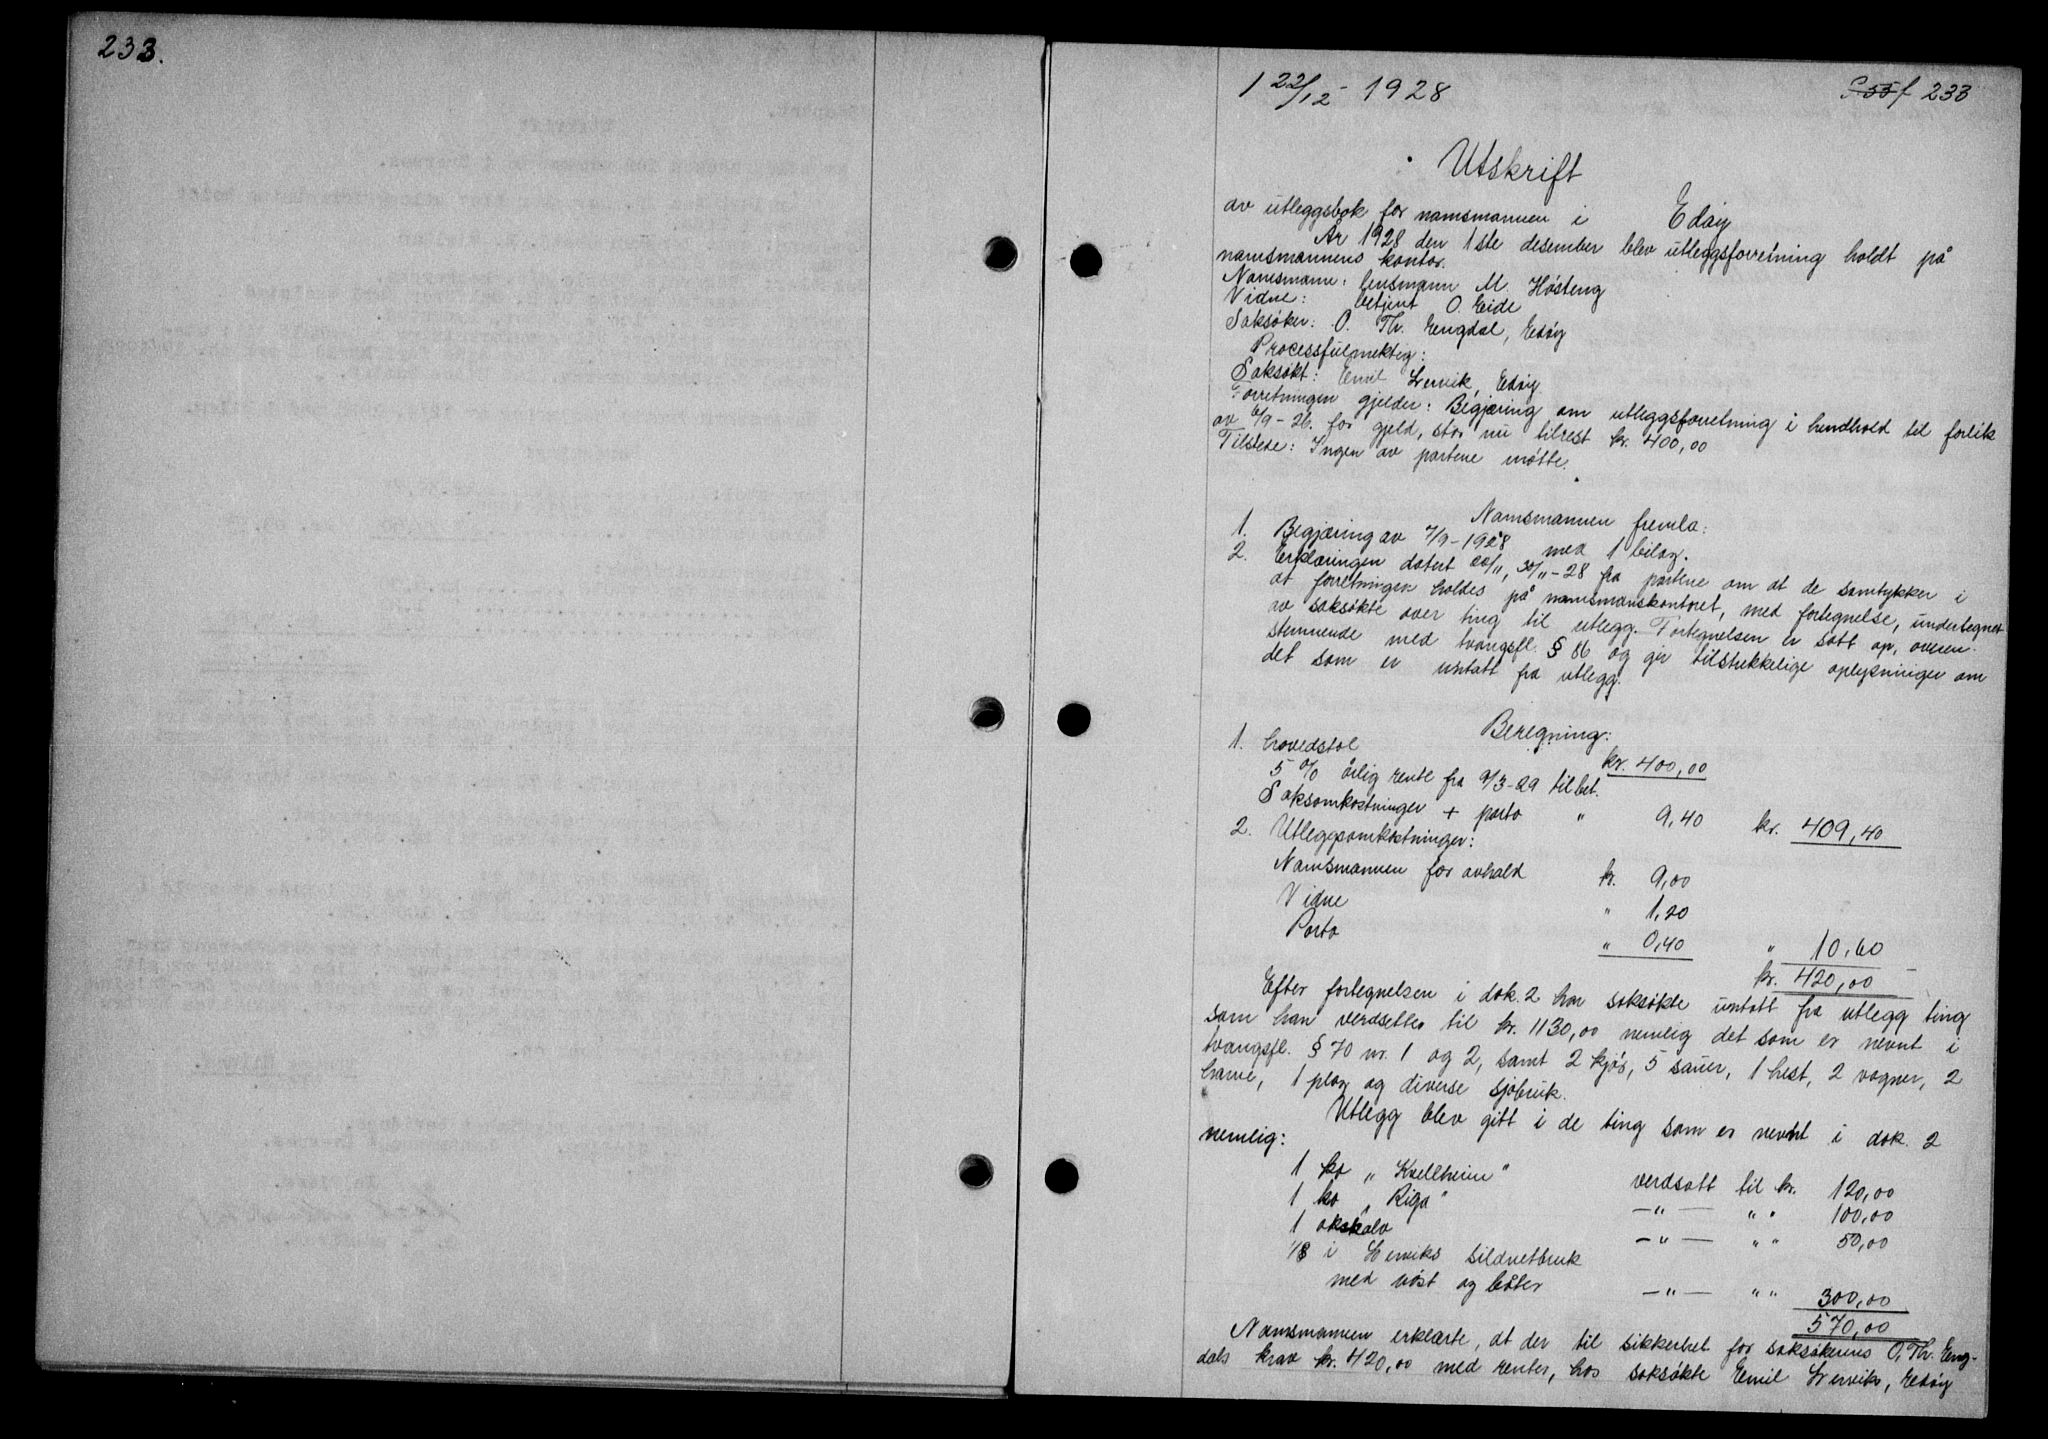 233.
1 22/12 - 1928
233
Utskrift
av utleggsbok for namsmannen i Edøy
År 1928 den 1ste desember blev utleggsforretning holdt på
namsmannens kontor.
Namsmann: lensmann M. Høsteng
Vidne: betjent O. Eide
Saksøker: O. Th. Engdal, Edøy
Processfulmektig:
Saksøkt: Emil Lervik, Edøy
Forretningen gjelder: Begjæring om utleggsforretning i henhold til forlik
av 6/9-26. for gjeld, stor nu tilrest kr. 400,00
Tilstede: Ingen av partene møtte.
Namsmannen fremla:
1. Begjæring av 7/9-1928 med 1 bilag.
2. Erklæringen datert 20/11, 30/11-28 fra partene om at de samtykker i
at forretningen holdes på namsmanskontoret, med fortegnelse, undertegnet
av saksøkte over ting til utlegg. Fortegnelsen er satt op, overen-
stemmende med tvangsfl. § 86 og gir tilstrekkelige oplysninger om
det som er untatt fra utlegg.
Beregning:
1. hovedstol kr. 400,00
5 % årlig rente fra 9/3-29 til bet.
Saksomkostninger + porto " 9,40 kr. 409,40
2. Utleggsomkostninger:
Namsmannen for avhold kr. 9,00
Vidne " 1,20
Porto " 0,40 " 10,60
kr. 420,00
Efter fortegnelsen i dok. 2 har saksøkte untatt fra utlegg ting
som han verdsetter til kr. 1130,00 nemlig det som er nevnt i
tvangsfl. § 70 nr. 1 og 2, samt 2 kjør, 5 sauer, 1 hest, 2 vogner, 2
harve, 1 plog og diverse sjøbruk.
Utlegg blev gitt i de ting som er nevnt i dok. 2
nemlig:
1 ko "Kvellheim" verdsatt til kr. 120,00
1 ko "Riga" -"- " " 100,00
1 oksekalv -"- " " 50,00
1/8 i Lerviks sildnetbruk
med vøst og båter -"- " " 300,00
570,00
Namsmannen erklærte, at der til sikkerhet for saksøkerens O. Th. Eng-
dals krav kr. 420,00 med renter, hos saksøkte Emil Lerviks, Edøy